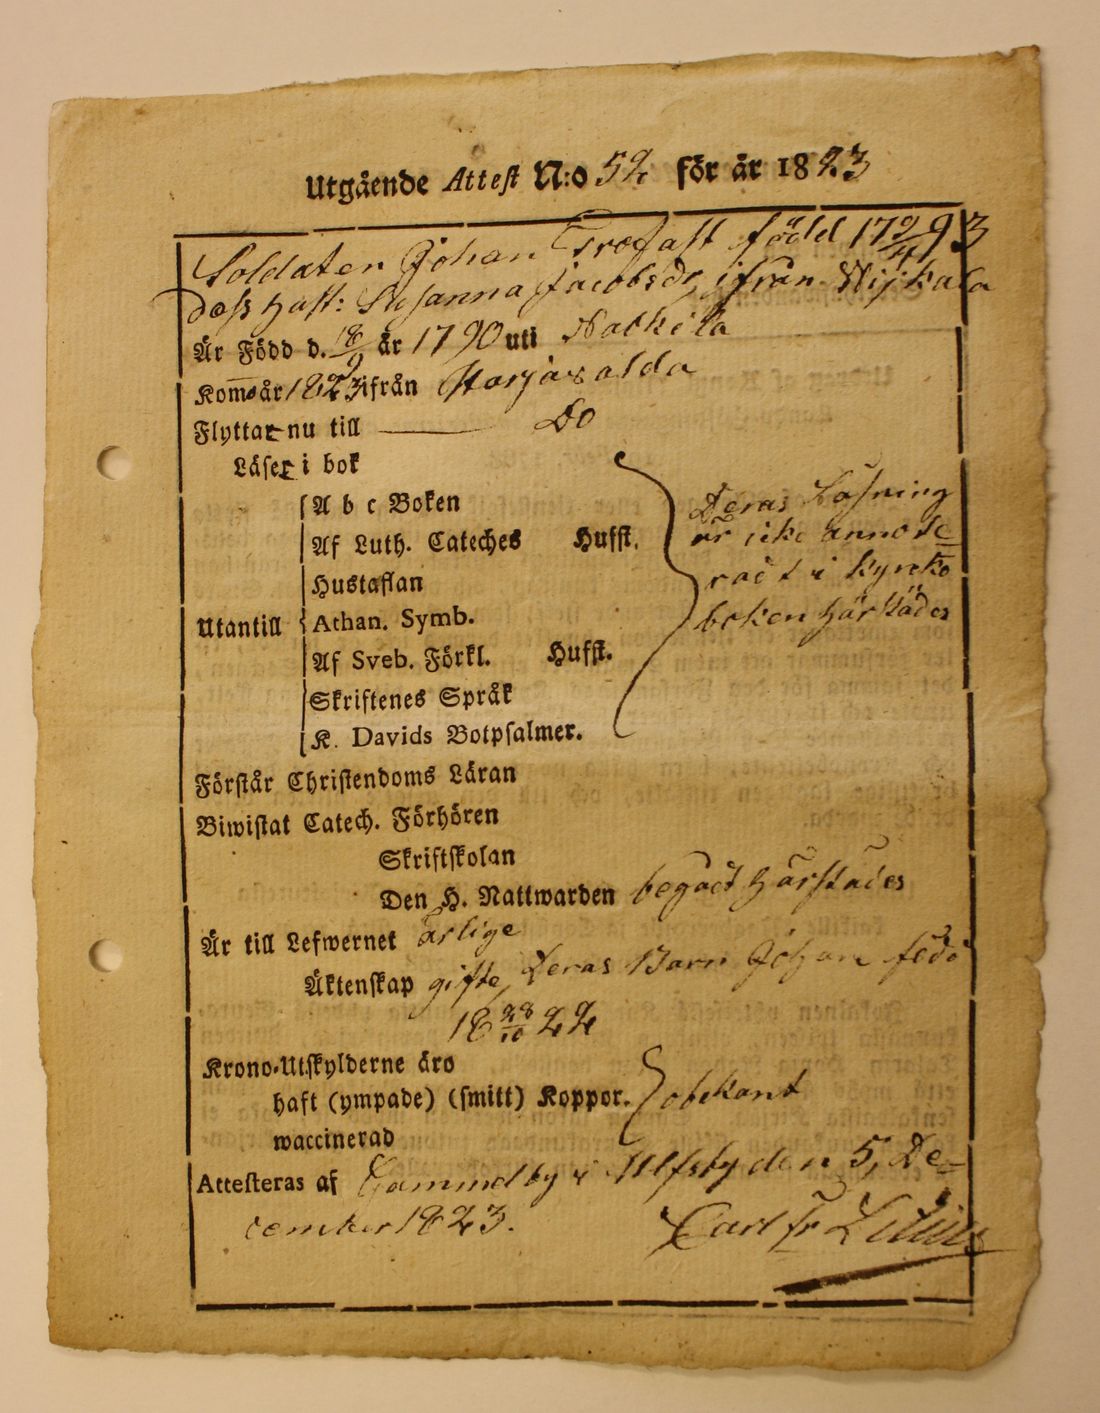 Utgående Attest N:o 52 för år 1823
Soldaten Johan Trofast född 17 9/4 93
dess Hust: Susanna Jacobsdr ifrån Kijkala
Är Född d. 18/9 år 1790 uti Nackila
Kom år 1823 ifrån Storjäsalda
Flyttar nu till Do
Läser i bok
A b c Boken
Af Luth. Cateches Hufst.
Hustaflan
Utantill Athan. Symb.
Af Sveb. Förkl. Hufst.
Skriftenes Språk
K. Davids Botpsalmer.
Deras Läsning
är icke annote
radt i kyrko
boken härstädes
Förstår Christendoms Läran
Biwistat Catech. Förhören
Skriftskolan
Den H. Nattwarden begådt härstädes
Är till Lefwernet ärlige
Äktenskap gifte, Deras Barn Johan född
18 28/10 22
Krono-Utskylderne äro
haft (ympade) (smitt) Koppor. obekant
waccinerad
Attesteras af Gammelby i Ulfsby den 5, De-
cember 1823. Carl Fr